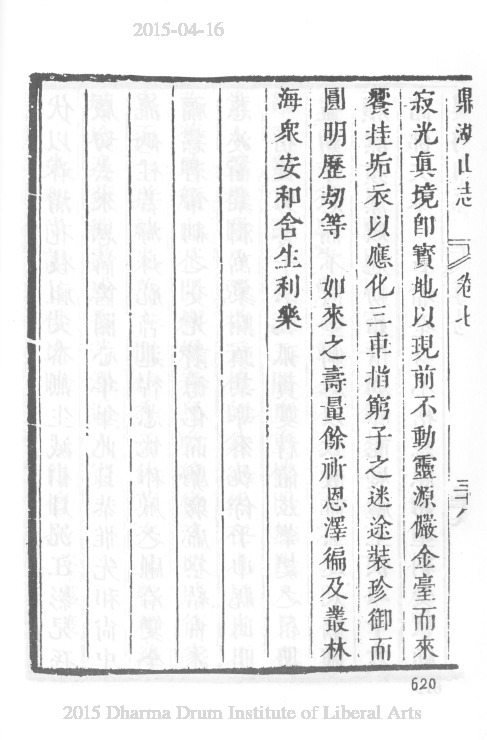 2015-04-16
鼎湖山志 卷七 三十八
寂光真境卽寳地以現前不動靈源儼金臺而來
饗挂垢衣以應化三車指窮子之迷途裝珍御而
圓明歷劫等 如來之壽量餘祈恩澤徧及叢林
海衆安和含生利樂
620
2015 Dharma Drum Institute of Liberal Arts